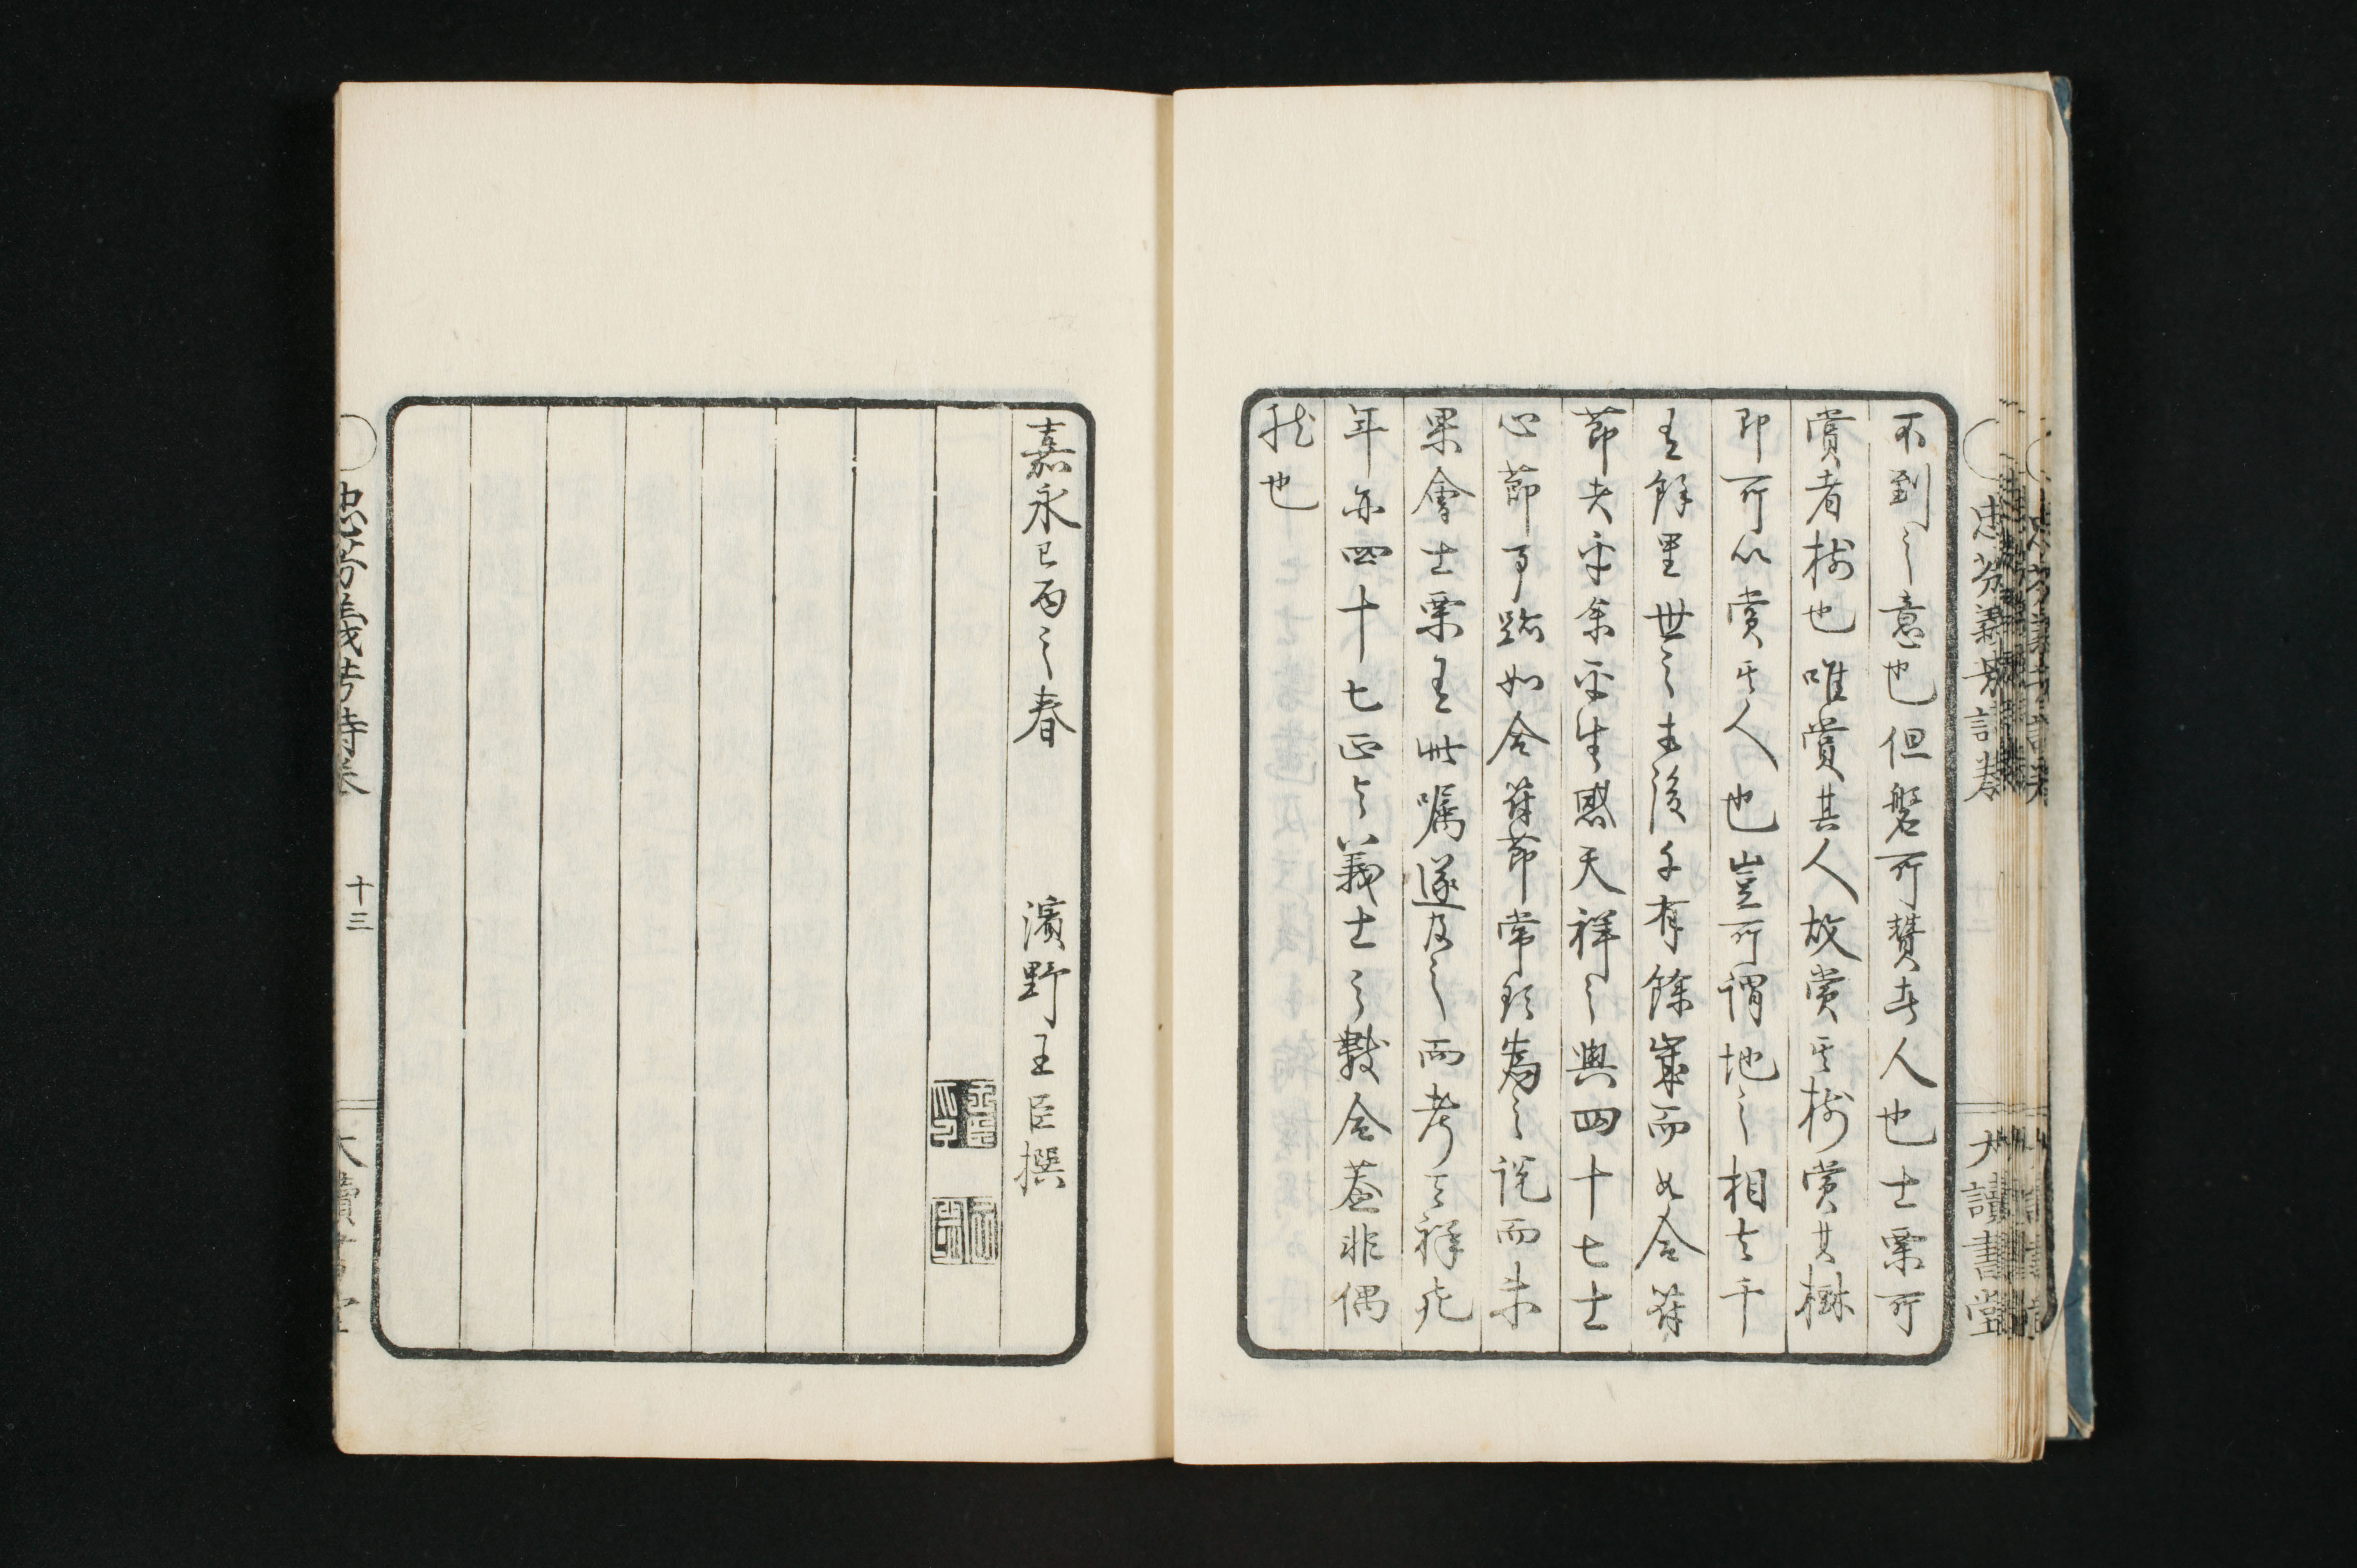 不到之意也但磐所贊者人也士栗所
賞者樹也唯賞其人故賞其樹賞其樹
即所以賞其人也豈所謂地之相去千
有餘里世之相後千有餘歲而如合符
節者乎余平生感天祥之與四十七士
心節事跡如合符節常欲為之說而未
果會士栗有此囑遂及之而考天祥死
年亦四十七正與義士之數合蓋非偶
然也
嘉永己酉之春 濱野王臣撰
忠芬義芳詩卷 十三
大讀書堂